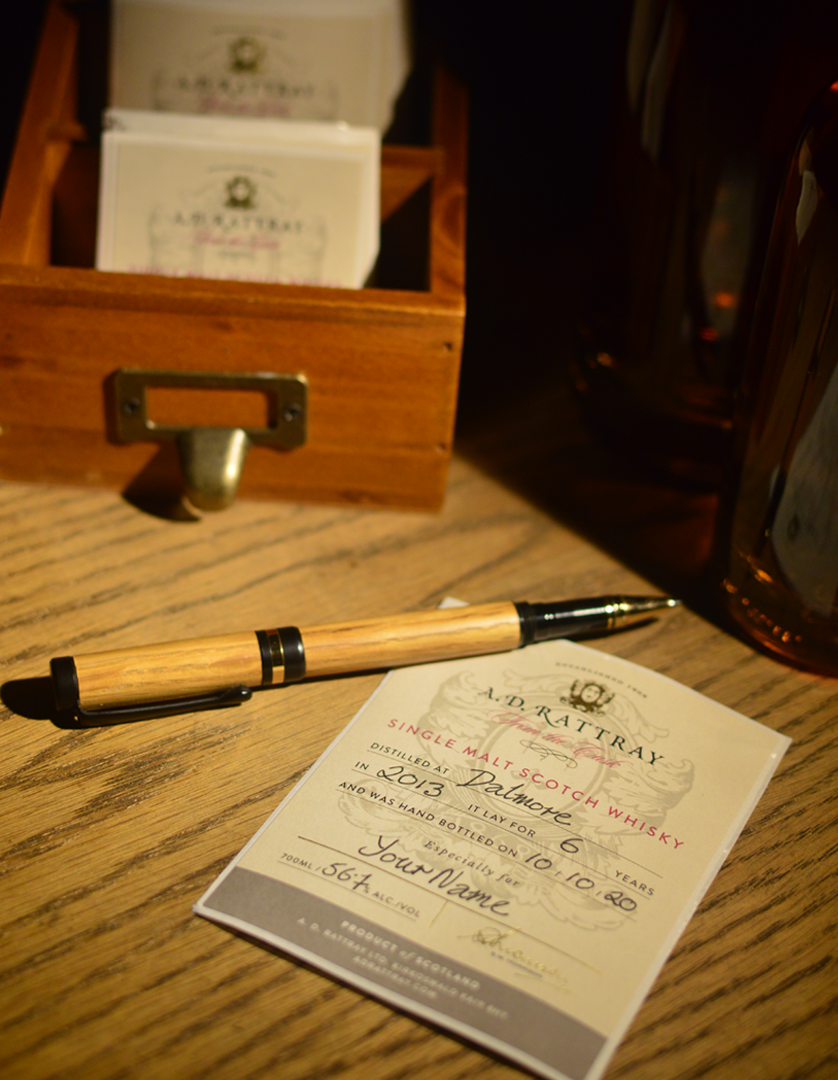 A.D. RATTRAY
A.D. RATTRAY
ESTABLISHED 1868
A. D. RATTRAY
From the Cask
SINGLE MALT SCOTCH WHISKY
DISTILLED AT Dalmore
IN 2013 IT LAY FOR 6 YEARS
AND WAS HAND BOTTLED ON 10 / 10 / 20
Especially for
Your Name
700ML / 56.7% ALC/VOL
PRODUCT of SCOTLAND
A. D. RATTRAY LTD, KIRKOSWALD
ADRATTRAY.COM